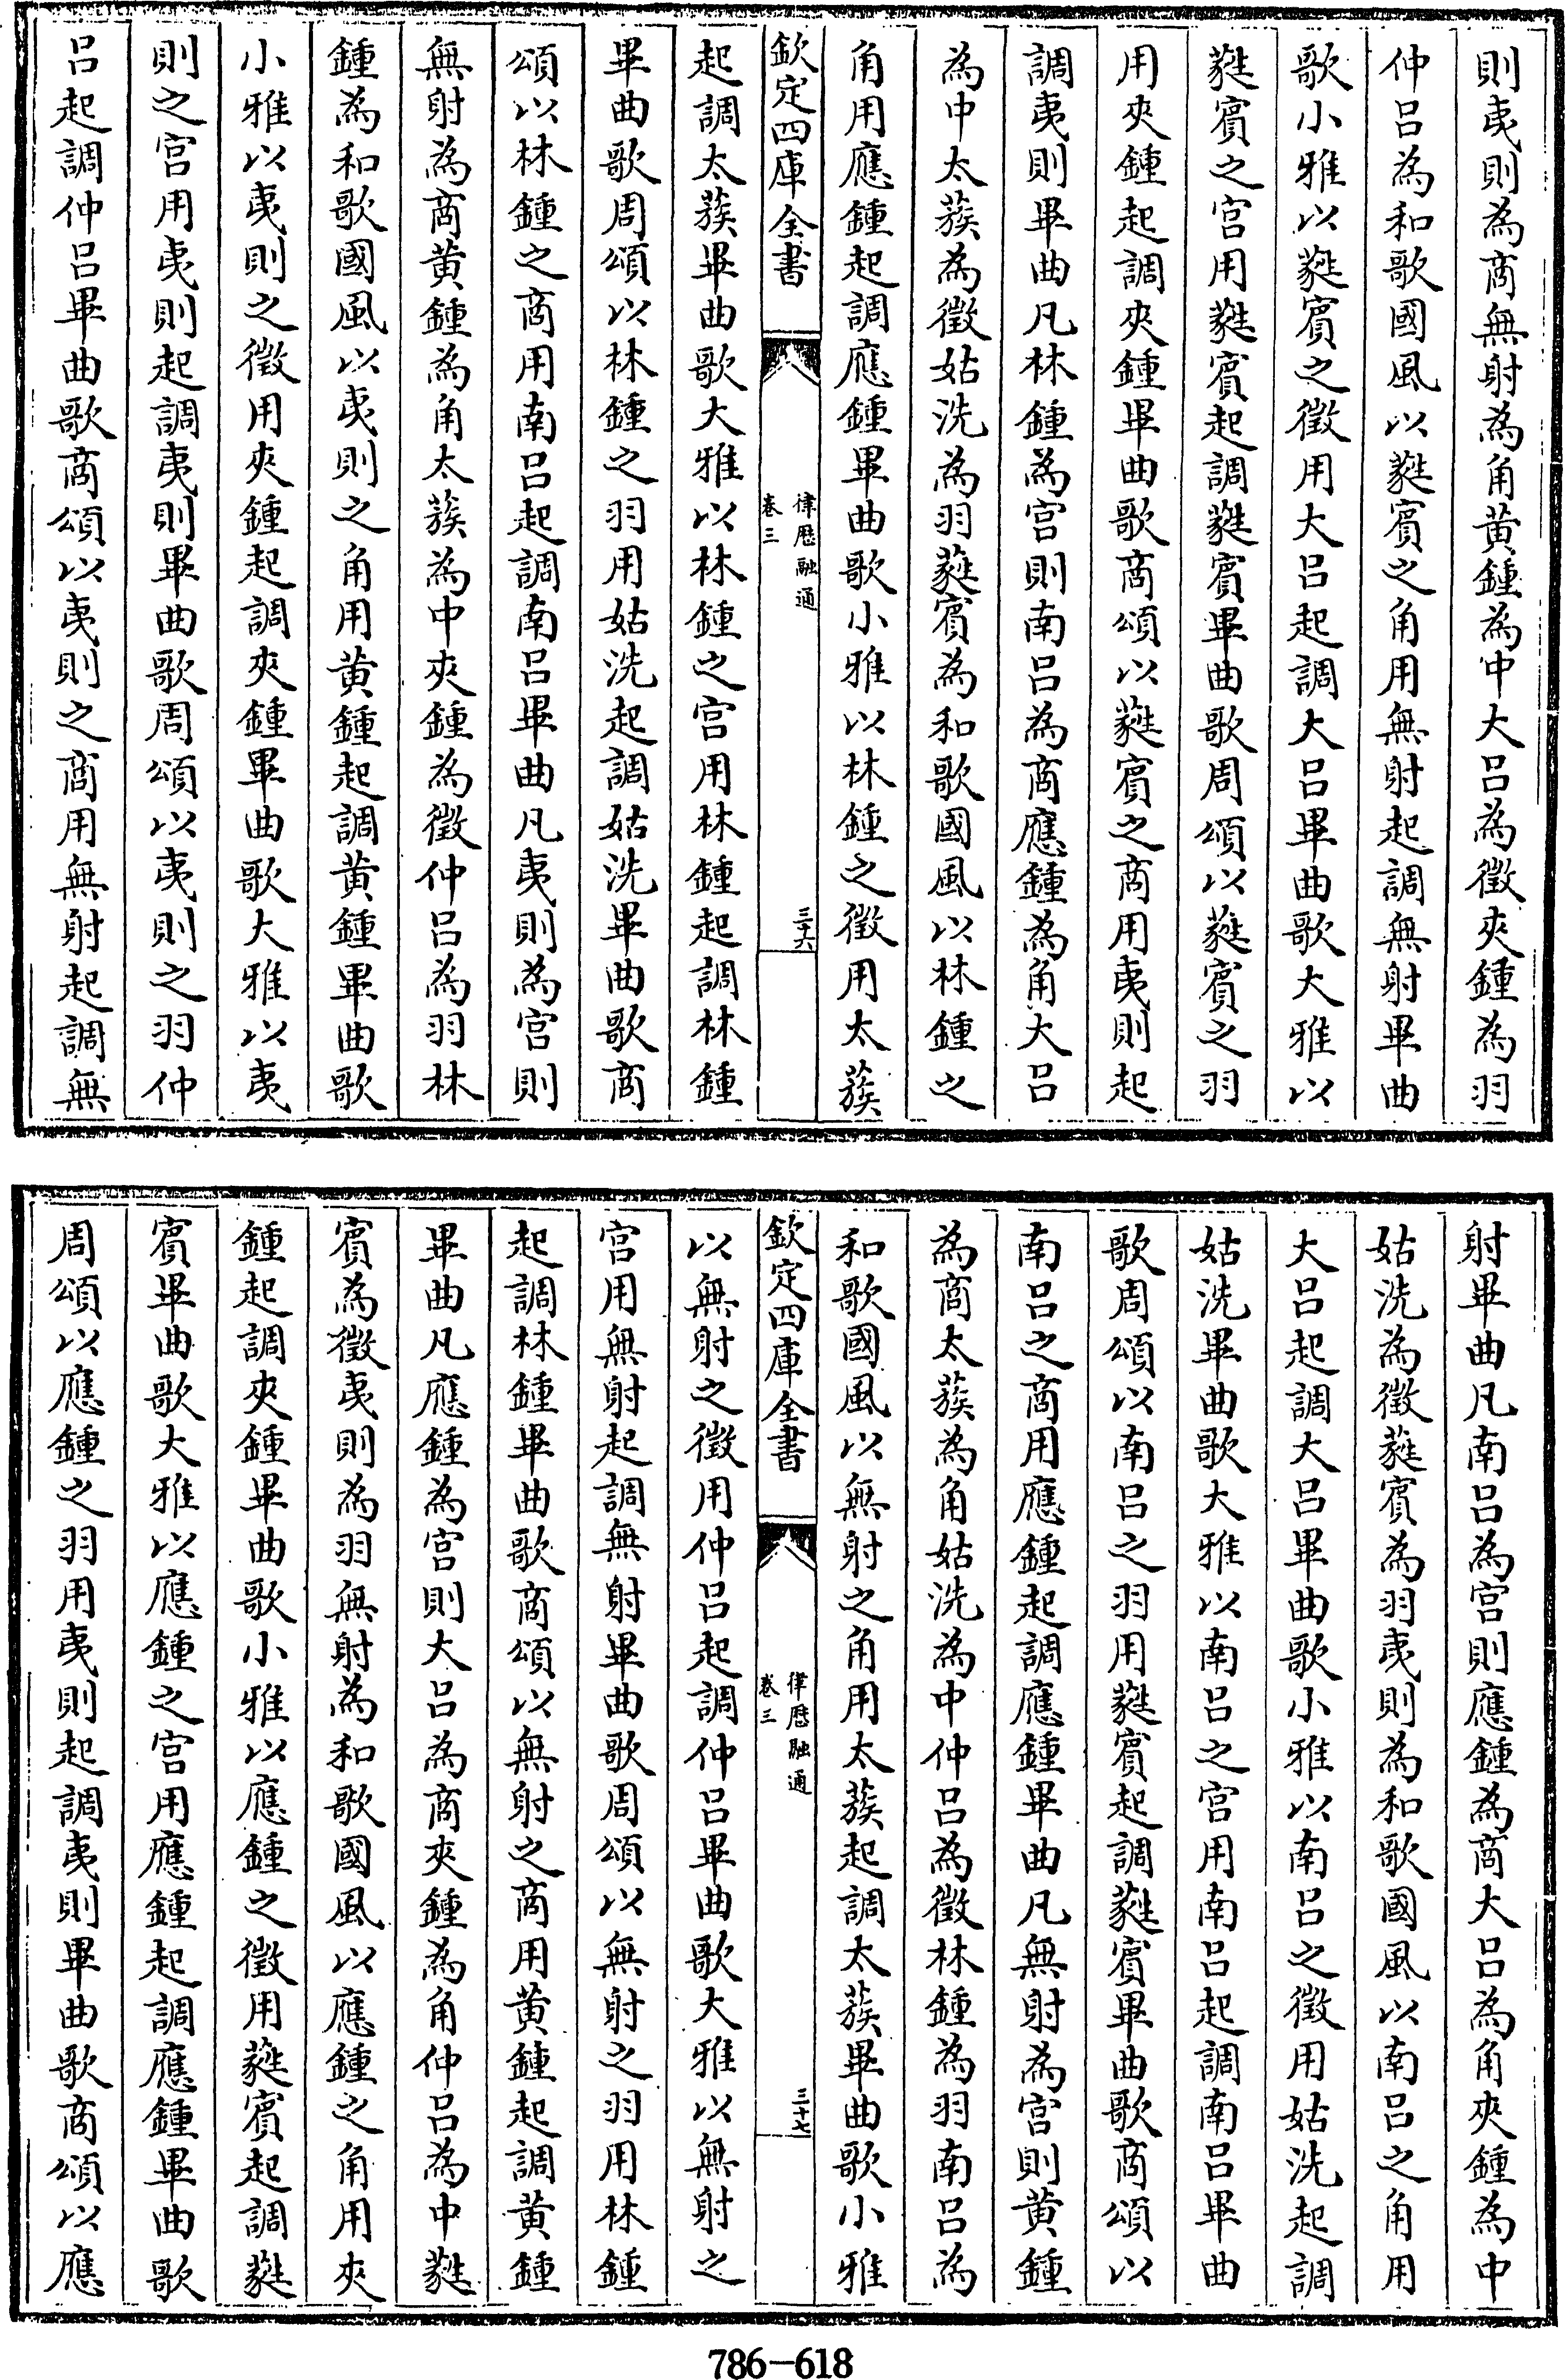 則夷則為商無射為角黄鍾為中大吕為徵夾鍾為羽
仲吕為和歌國風以蕤賓之角用無射起調無射畢曲
歌小雅以蕤賓之徵用大吕起調大吕畢曲歌大雅以
蕤賓之宫用蕤賓起調蕤賓畢曲歌周頌以蕤賓之羽
用夾鍾起調夾鍾畢曲歌商頌以蕤賓之商用夷則起
調夷則畢曲凡林鍾為宫則南吕為商應鍾為角大吕
為中太蔟為徵姑洗為羽蕤賓為和歌國風以林鍾之
角用應鍾起調應鍾畢曲歌小雅以林鍾之徵用太蔟
欽定四庫全書
律厯融通
卷三
三十六
起調太蔟畢曲歌大雅以林鍾之宫用林鍾起調林鍾
畢曲歌周頌以林鍾之羽用姑洗起調姑洗畢曲歌商
頌以林鍾之商用南吕起調南吕畢曲凡夷則為宫則
無射為商黄鍾為角太蔟為中夾鍾為徵仲吕為羽林
鍾為和歌國風以夷則之角用黄鍾起調黄鍾畢曲歌
小雅以夷則之徵用夾鍾起調夾鍾畢曲歌大雅以夷
則之宫用夷則起調夷則畢曲歌周頌以夷則之羽仲
吕起調仲吕畢曲歌商頌以夷則之商用無射起調無
射畢曲凡南吕為宫則應鍾為商大吕為角夾鍾為中
姑洗為徵蕤賓為羽夷則為和歌國風以南吕之角用
大吕起調大吕畢曲歌小雅以南吕之徵用姑洗起調
姑洗畢曲歌大雅以南吕之宫用南吕起調南吕畢曲
歌周頌以南吕之羽用蕤賓起調蕤賓畢曲歌商頌以
南吕之商用應鍾起調應鍾畢曲凡無射為宫則黄鍾
為商太蔟為角姑洗為中仲吕為徵林鍾為羽南吕為
和歌國風以無射之角用太蔟起調太蔟畢曲歌小雅
欽定四庫全書
律厯融通
卷三
三十七
以無射之徵用仲吕起調仲吕畢曲歌大雅以無射之
宫用無射起調無射畢曲歌周頌以無射之羽用林鍾
起調林鍾畢曲歌商頌以無射之商用黄鍾起調黄鍾
畢曲凡應鍾為宫則大吕為商夾鍾為角仲吕為中蕤
賓為徵夷則為羽無射為和歌國風以應鍾之角用夾
鍾起調夾鍾畢曲歌小雅以應鍾之徵用蕤賓起調蕤
賓畢曲歌大雅以應鍾之宫用應鍾起調應鍾畢曲歌
周頌以應鍾之羽用夷則起調夷則畢曲歌商頌以應
786-618